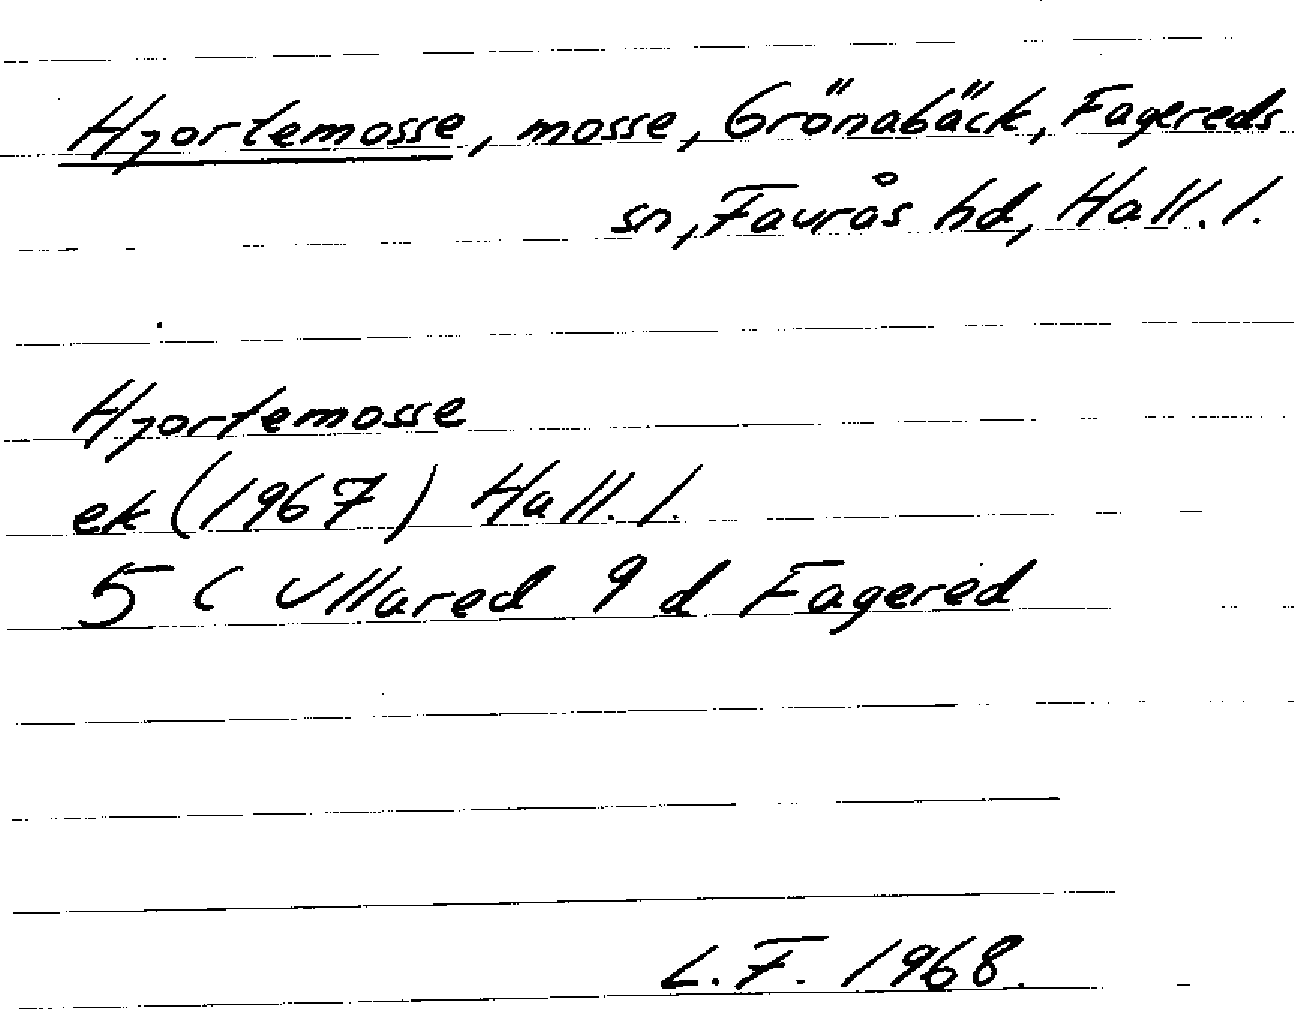 Hjortemosse, mosse, Grönabäck, Fagereds
sn, Faurås hd, Hall. l.
Hjortemosse
ek (1967) Hall. l.
5 C Ullared 9 d Fagered
L.F. 1968.